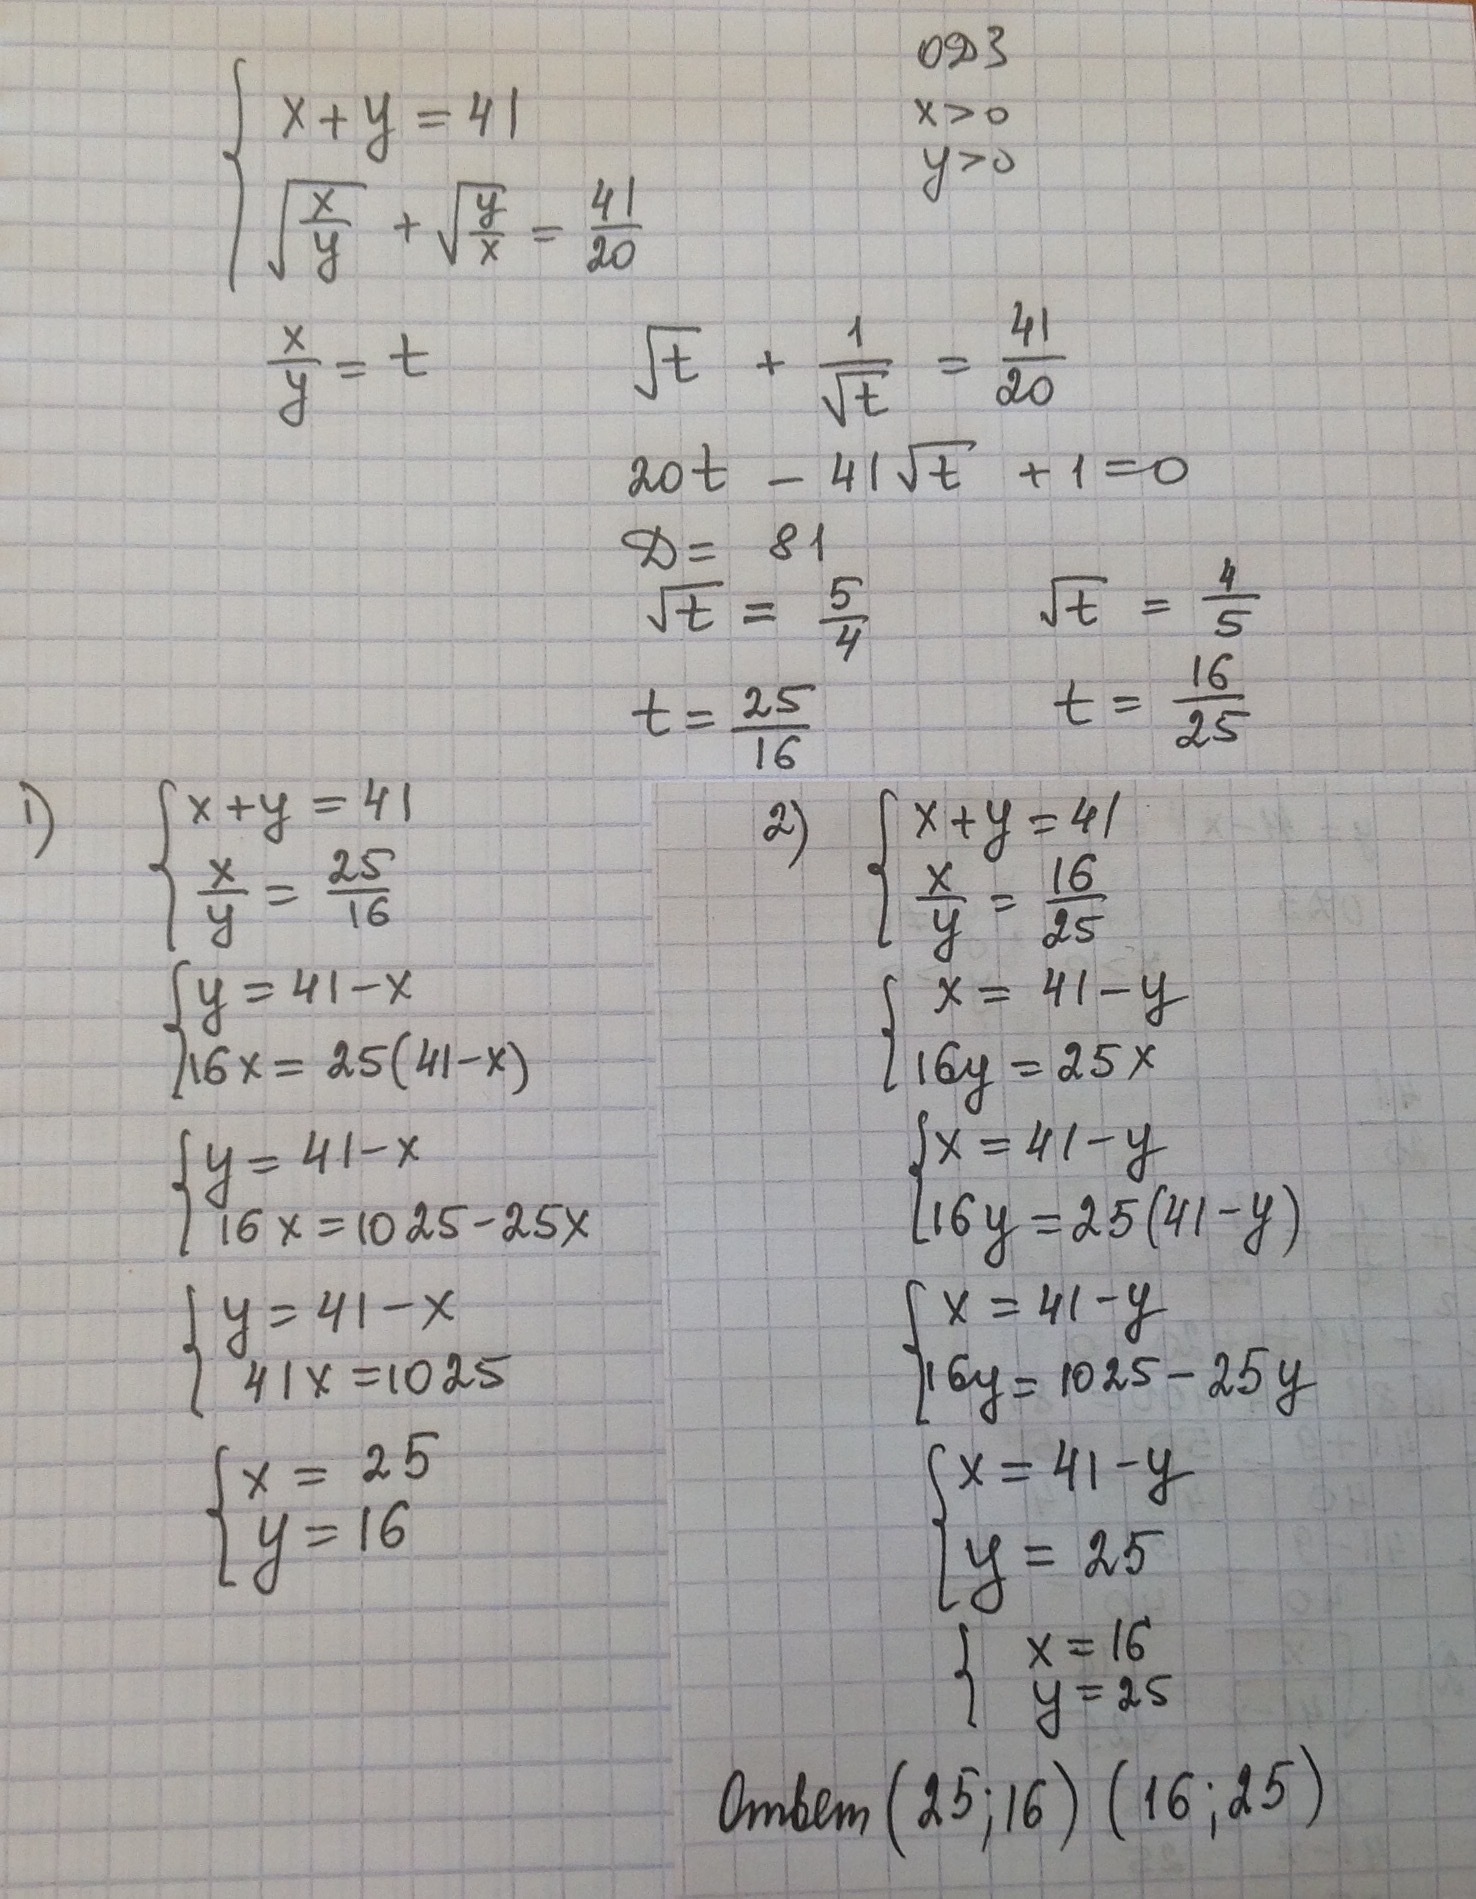 ОДЗ
x + y = 41
x > 0
y > 0
√(x/y) + √(y/x) = 41/20
x/y = t
√t + 1/√t = 41/20
20t - 41√t + 1 = 0
D = 81
√t = 5/4
√t = 4/5
t = 25/16
t = 16/25
1)
{ x + y = 41
x/y = 25/16
{ y = 41 - x
16x = 25(41 - x)
{ y = 41 - x
16x = 1025 - 25x
{ y = 41 - x
41x = 1025
{ x = 25
y = 16
2)
{ x + y = 41
x/y = 16/25
{ x = 41 - y
16y = 25x
{ x = 41 - y
16y = 25(41 - y)
{ x = 41 - y
16y = 1025 - 25y
{ x = 41 - y
y = 25
{ x = 16
y = 25
Ответ (25; 16) (16; 25)